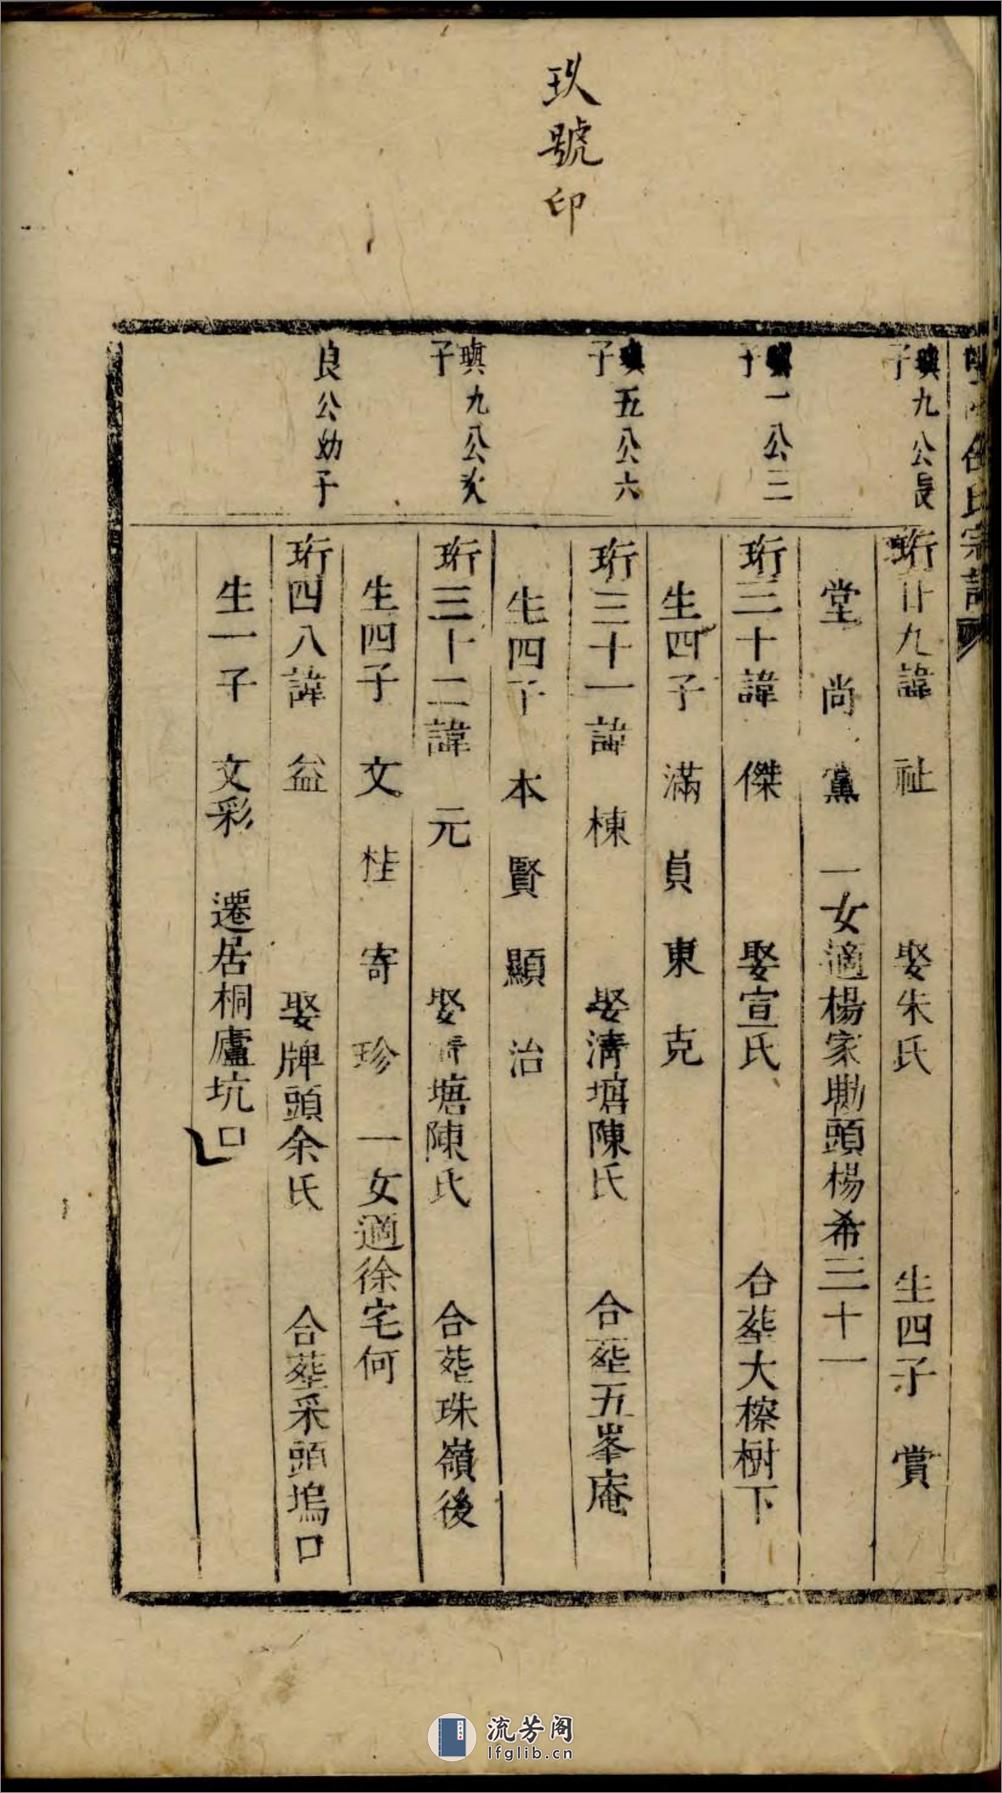 玖號印
氏宗譜
璵九公長子
珩廿九諱 祉 娶朱氏 生四子 賞
堂 尚 黨 一女適楊家勘頭楊希三十一
璵一公三子
珩三十諱 傑 娶宣氏 合塟大檫樹下
生四子 滿 貞 東 克
璵五公六子
珩三十一諱 棟 娶清塘陳氏 合塟五峯庵
生四子 本 賢 顯 治
璵九公次子
珩三十二諱 元 娶清塘陳氏 合塟珠嶺後
生四子 文 桂 寄 珍 一女適徐宅何
良公幼子
珩四八諱 益 娶牌頭余氏 合塟采頭塢口
生一子 文彩 遷居桐廬坑口
流芳阁
lfglib.cn